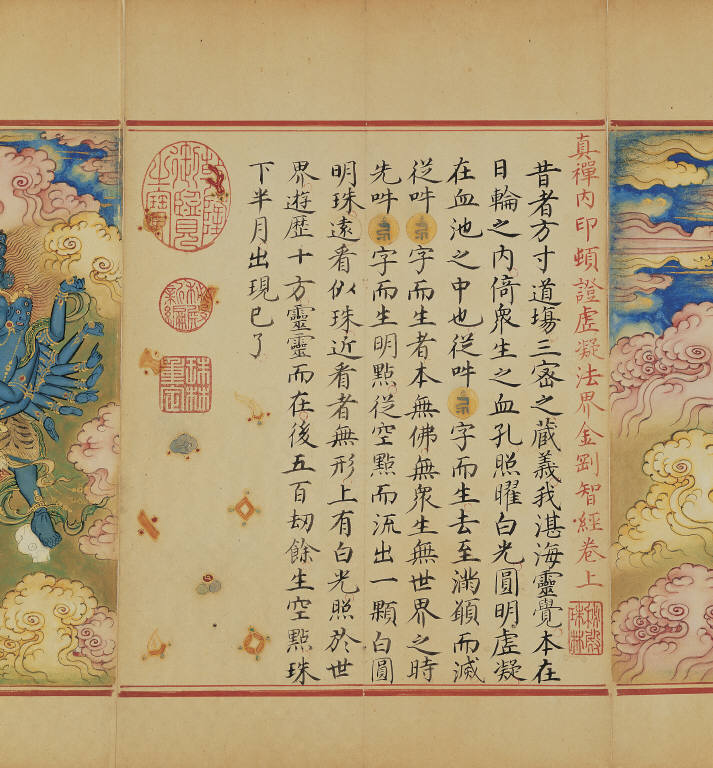 真禪內印頓證虛凝法界金剛智經卷上
昔者方寸道場三密之藏義我湛海靈覺本在
日輪之內倚衆生之血孔照曜白光圓明虛凝
在血池之中也從吽字而生去至滿願而滅
從吽字而生者本無佛無衆生無世界之時
先吽字而生明點從空點而流出一顆白圓
明珠遠看似珠近看者無形上有白光照於世
界遊歷十方靈靈而在後五百劫餘生空點珠
下半月出現已了
乾隆御覽之寶
秘殿新編
珠林重定
秘殿珠林